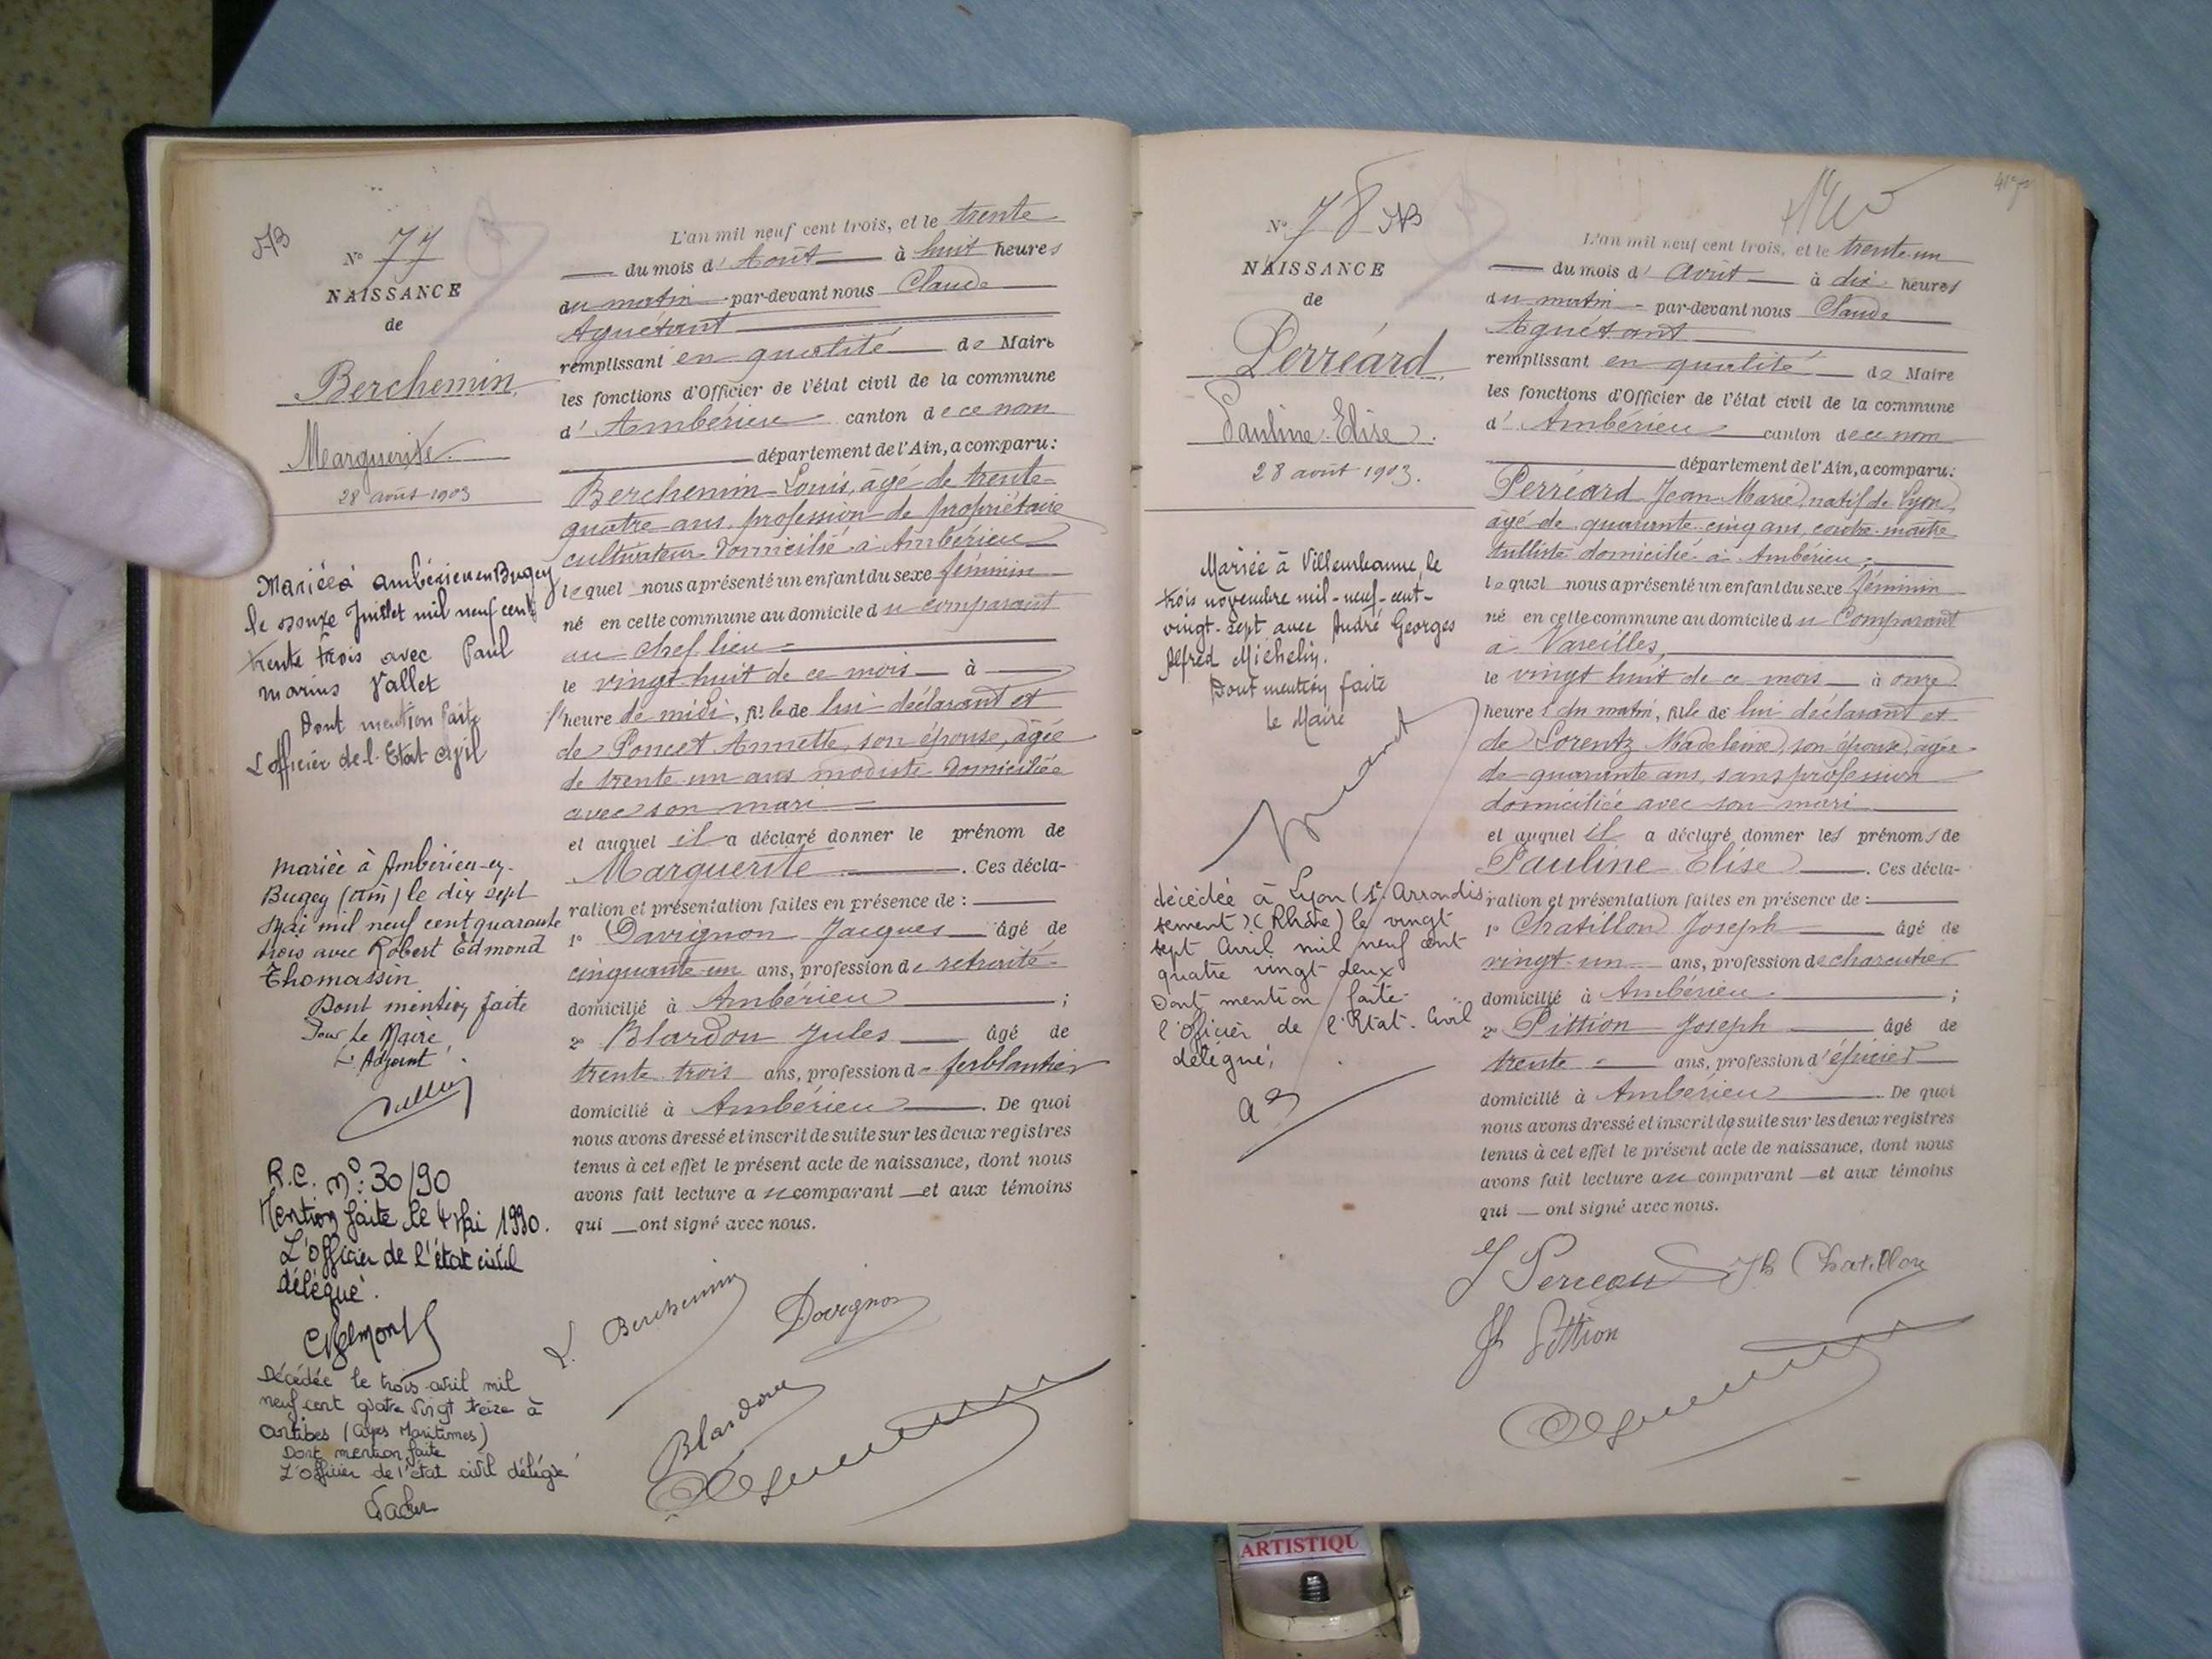 N° 77
NAISSANCE
de
Berchemin
Marguerite.
28 août 1903
Mariée à Ambérieu en Bugey
le onze Juillet mil neuf cent
trente trois avec Paul
Marius Vallet
Dont mention faite
L'officier de l'Etat civil
Mariée à Ambérieu-en-
Bugey (Ain) le dix sept
Mai mil neuf cent quarante
trois avec Robert Edmond
Thomassin
Dont mention faite
Pour Le Maire
L'Adjoint
R.C. N°: 30/90
Mention faite le 4 Mai 1990.
L'officier de l'état civil
délégué.
Décédée le trois avril mil
neuf cent quatre vingt treize à
Antibes (Alpes Maritimes)
Dont mention faite
L'officier de l'état civil délégué
L'an mil neuf cent trois, et le trente
du mois d' Août à huit heures
du matin par-devant nous Claude
Aguétant
remplissant en qualité de Maire
les fonctions d'Officier de l'état civil de la commune
d' Ambérieu canton de ce nom
département de l'Ain, a comparu:
Berchemin Louis, âgé de trente-
quatre ans, profession de propriétaire
cultivateur domicilié à Ambérieu
lequel nous a présenté un enfant du sexe féminin
né en cette commune au domicile du comparant
au chef lieu
le vingt-huit de ce mois à
l'heure de midi, fille de lui déclarant et
de Poncet Annette, son épouse, âgée
de trente un ans modiste domiciliée
avec son mari
et auquel il a déclaré donner le prénom de
Marguerite. Ces décla-
ration et présentation faites en présence de :
1° Davignon Jacques âgé de
cinquante-un ans, profession de retraité
domicilié à Ambérieu ;
2° Blardon Jules âgé de
trente trois ans, profession de ferblantier
domicilié à Ambérieu. De quoi
nous avons dressé et inscrit de suite sur les deux registres
tenus à cet effet le présent acte de naissance, dont nous
avons fait lecture au comparant et aux témoins
qui ont signé avec nous.
L. Berchemin Davignon
Blardon
N° 78
NAISSANCE
de
Perréard
Pauline Elise.
28 août 1903.
Mariée à Villeurbanne, le
trois novembre mil-neuf-cent-
vingt-sept avec André Georges
Alfred Michelin.
Dont mention faite
Le Maire
décédée à Lyon (1er Arrondis
sement) (Rhône) le vingt
sept Avril mil neuf cent
quatre vingt deux
Dont mention faite
l'officier de l'Etat-Civil
délégué,
L'an mil neuf cent trois, et le trente-un
du mois d' Août à dix heures
du matin par-devant nous Claude
Aguétant
remplissant en qualité de Maire
les fonctions d'Officier de l'état civil de la commune
d' Ambérieu canton de ce nom
département de l'Ain, a comparu:
Perréard Jean-Marie, natif de Lyon,
âgé de quarante-cinq ans, contre-maître
tulliste domicilié à Ambérieu,
lequel nous a présenté un enfant du sexe féminin
né en cette commune au domicile du Comparant
à Vareilles,
le vingt huit de ce mois à onze
heures du matin, fille de lui déclarant et
de Lorentz Madeleine, son épouse, âgée
de quarante ans, sans profession
domiciliée avec son mari
et auquel il a déclaré donner les prénoms de
Pauline Elise. Ces décla-
ration et présentation faites en présence de :
1° Chatillon Joseph âgé de
vingt-un ans, profession de charcutier
domicilié à Ambérieu ;
2° Pittion Joseph âgé de
trente ans, profession d'épicier
domicilié à Ambérieu. De quoi
nous avons dressé et inscrit de suite sur les deux registres
tenus à cet effet le présent acte de naissance, dont nous
avons fait lecture au comparant et aux témoins
qui ont signé avec nous.
Jh Chatillon
Jh Pittion
ARTISTIQU